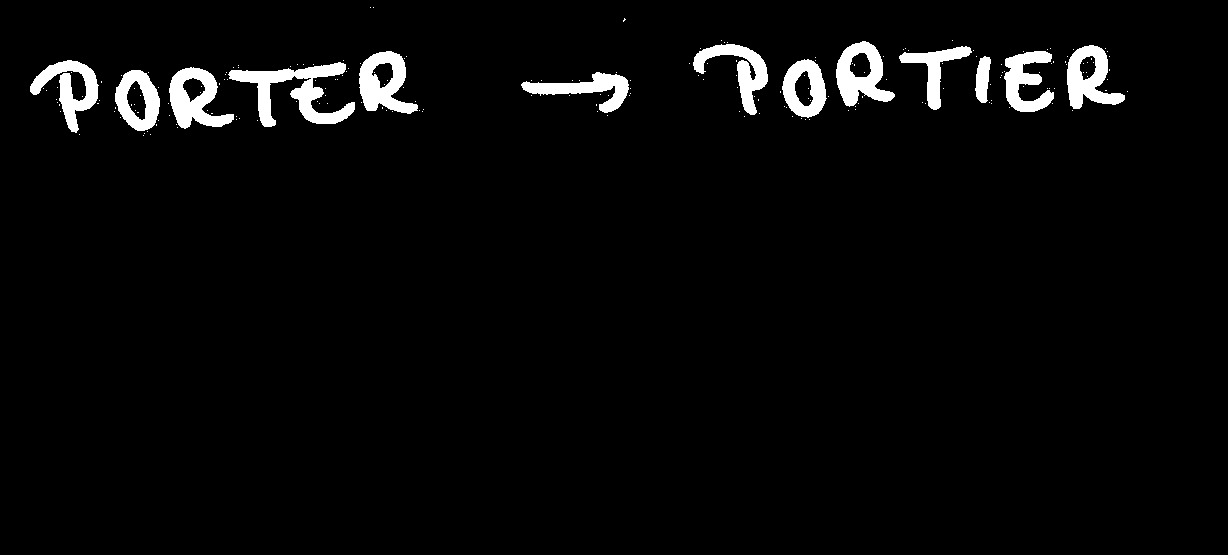 PORTER → PORTIER